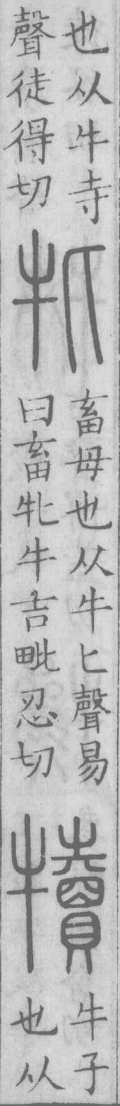 也从牛寺
聲徒得切
牝
畜母也从牛匕聲易
曰畜牝牛吉毗忍切
犢
牛子
也从